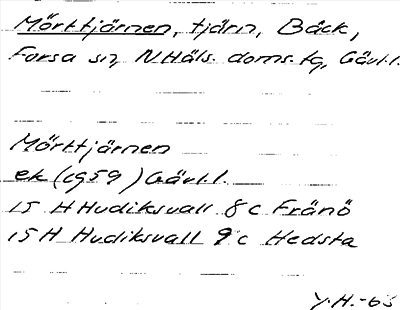 Mörttjärnen, tjärn, Bäck,
Forsa sn, N Häls. doms. tg, Gävl.l.
Mörttjärnen
ek (1959) Gävl.l.
15 H Hudiksvall 8 c Fränö
15 H Hudiksvall 9 c Hedsta
Y.H.-65